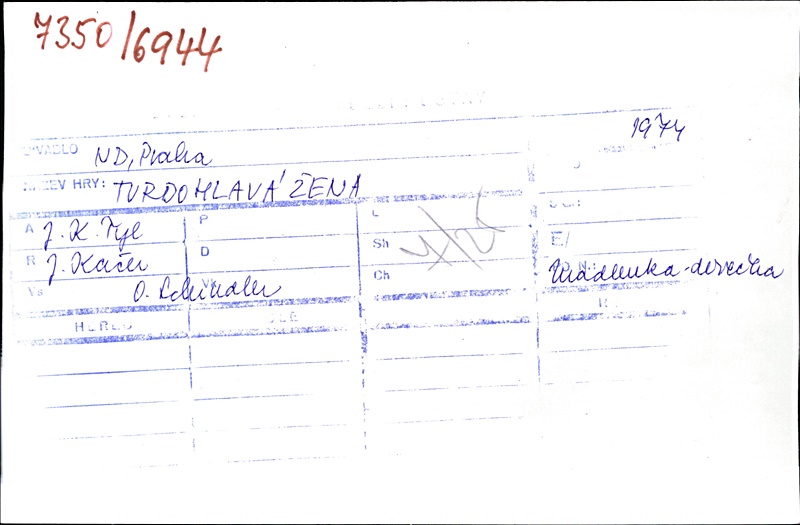 7350/6944
1974
DIVADLO ND, Praha
NÁZEV HRY: TVRDOHLAVÁ ŽENA
A J. K. Tyl P L
R J. Kačer D Sh 4/25 E/
Vs O. Schindler Ch Madlenka-dívečka
HEREC